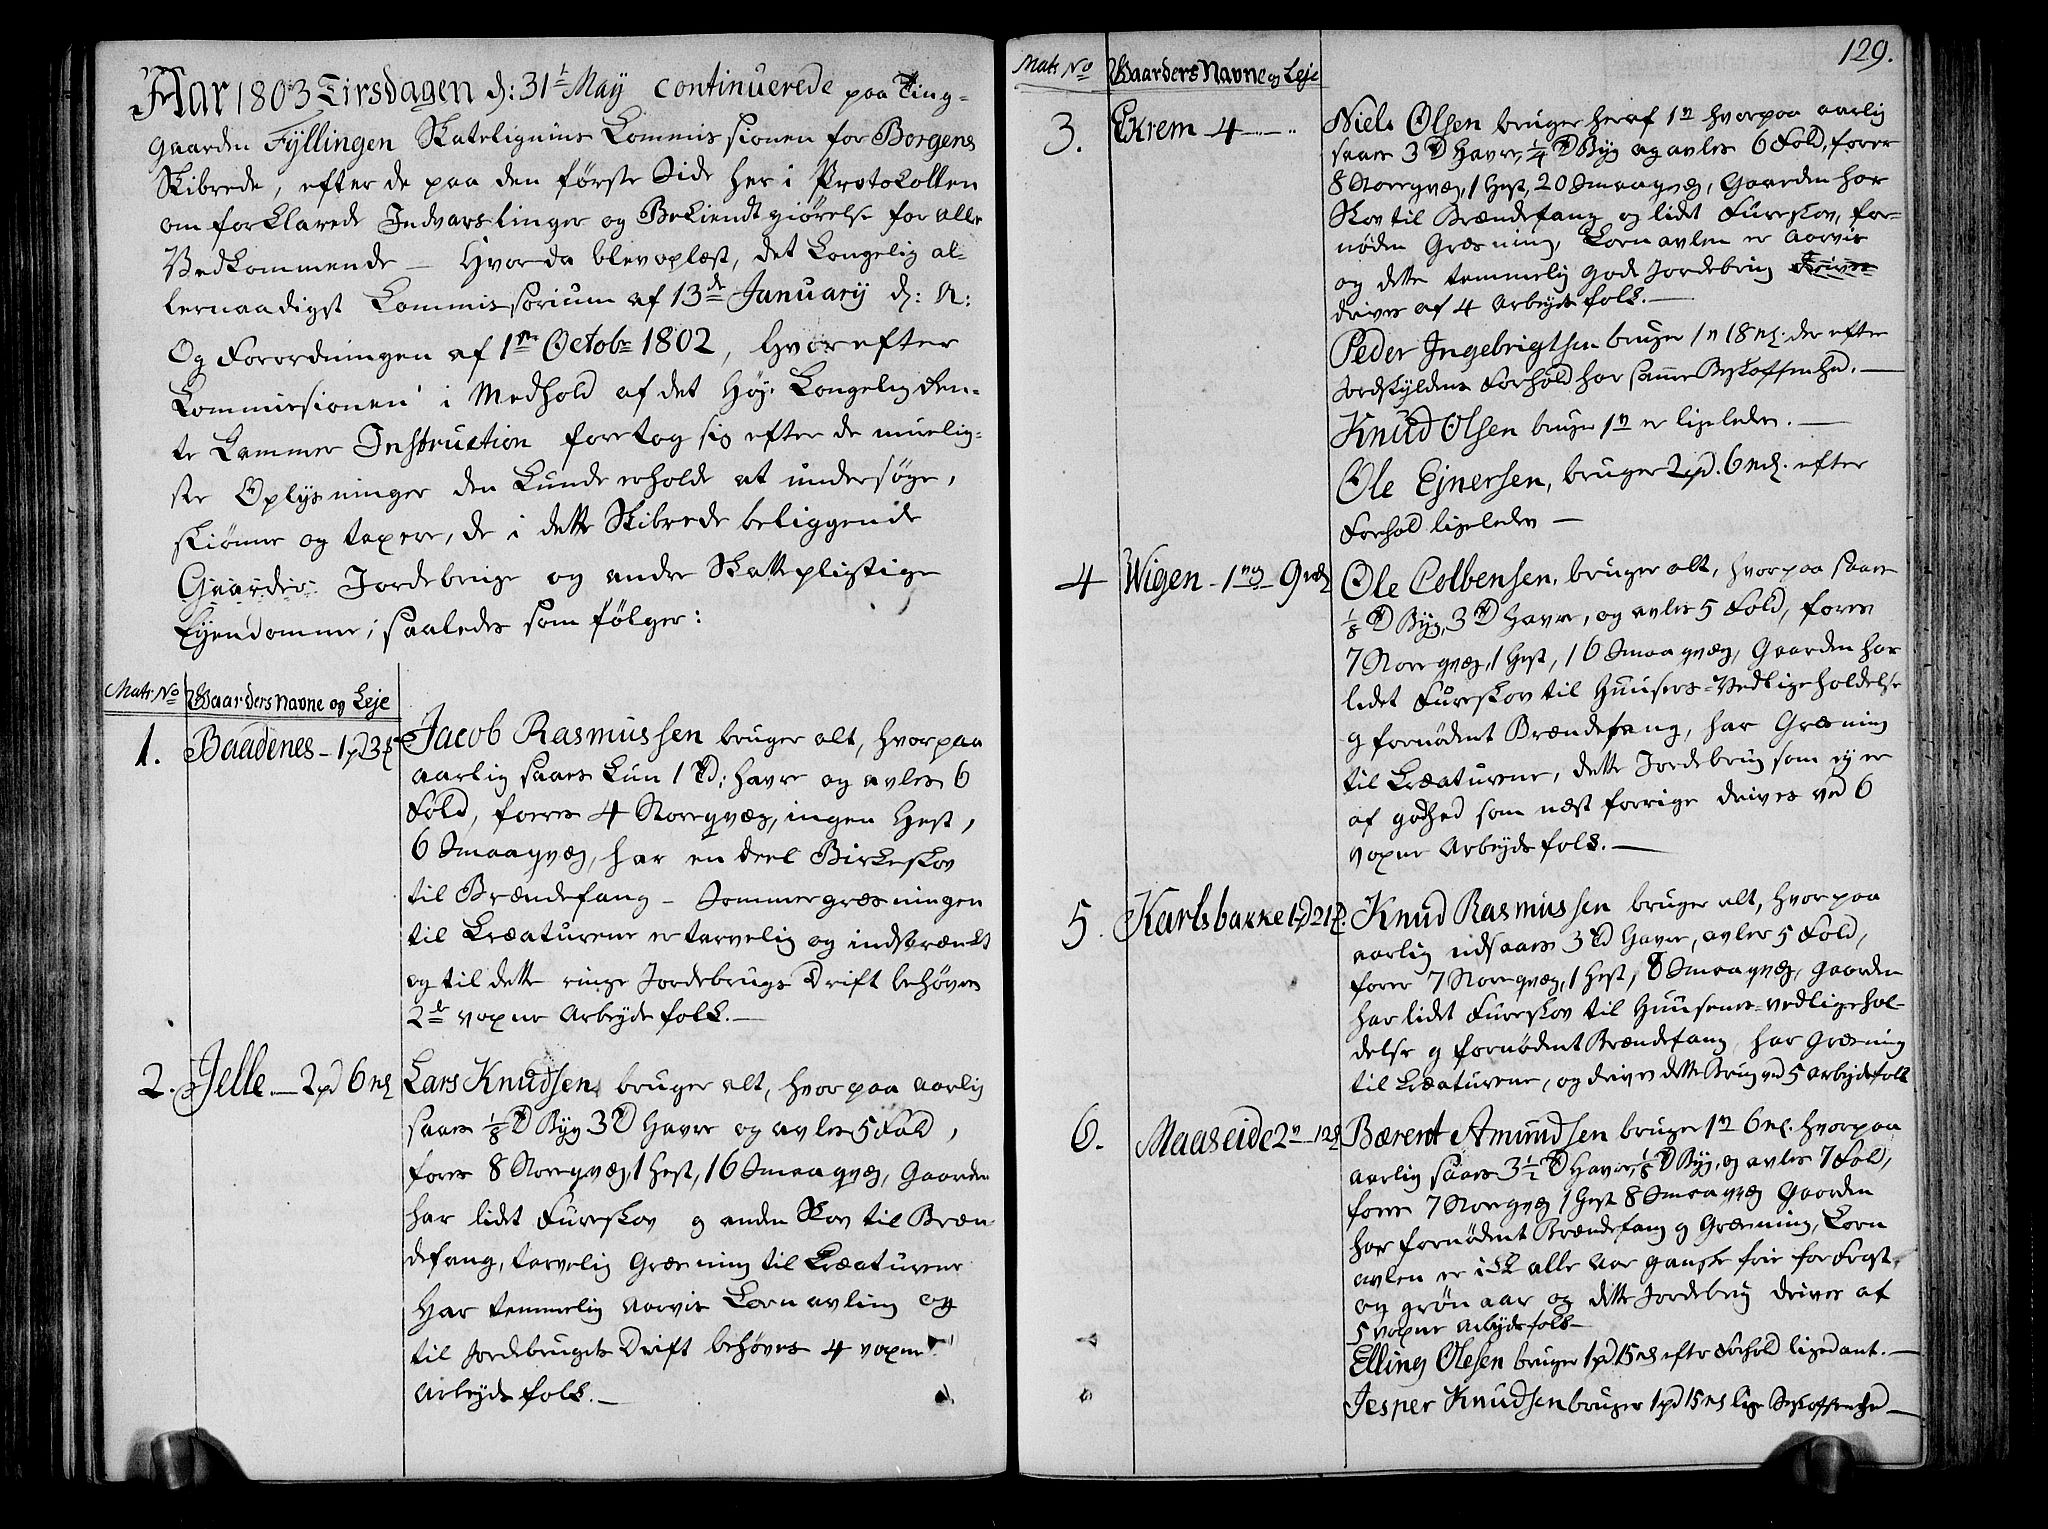 Aar 1803 Tirsdagen d: 31te Maÿ continuerede paa Ting-
gaarden Fÿllingen Skatelignins Commissionen for Borgens
Skibrede, efter de paa den første Side her i Protokollen
om forklarede Indvarslinger og Bekiendtgiørelse for alle
Vedkommende — Hvor da blev oplæst, det Kongelig al-
lernaadigst Commissorium af 13de Januarÿ d: A:
Og Forordningen af 1ste Octobr 1802, hvorefter
Commissionen i Medhold af det Høÿ Kongelig Ren-
te Kammer Instruction foretog sig efter de muelig-
ste Oplÿsninger den kunde erholde at undersøge,
skiønne og taxere, de i dette Skibrede beliggende
Gaarder: Jordebruge og andre Skattepligtige
Eyendomme, saaledes som følger:
Matr No Gaarders Navne og Leje
1. Baadenes - 1pd 3 Jacob Rasmussen bruger alt, hvorpaa
aarlig saaes kun 1 Td: Havre og avles 6
Fold, foeres 4 Storeqvæg, ingen Hest,
6 Smaaqvæg, har en deel Birkeskov
til Brændefang — Sommergræsningen
til Kræaturene er tarvelig og indskrænkt
og til dette ringe Jordebrugs Drift behøves
2de voxne Arbeyds folk. —
2. Jelle — 2pd 6 mk Lars Knudsen, bruger alt, hvorpaa aarlig
saaes 1/8 Td Byg 3 Td Havre og avles 5 Fold,
fores 8 Storeqvæg, 1 Hest, 16 Smaaqvæg, Gaarden
har lidet Fureskov og anden Skov til Bræn-
defang, tarvelig Græsning til Kræaturene
Har temmelig aarvis Kornavling og
til Jordebrugets Drift behøves 4 voxne
Arbeyds folk. —
129.
Matr No Gaarders Navne og Leje
3. Ekrem 4 — Niels Olsen bruger heraf 1 hvorpaa aarlig
saaes 3 Td Havre, 1/4 Td Byg og avles 6 Fold, forer
8 Storeqvæg, 1 Hest, 20 Smaaqvæg, Gaarden har
Skov til Brændefang og lidet Fureskov, for-
nøden Græsning, Kornavlen er aarvis
og dette temmelig gode Jordebrug
drives af 4 Arbeyds folk. —
Peder Ingebrigtsen bruger 1 18 mk. der efter
Jordskyldens Forhold har samme Beskaffenhed. —
Knud Olsen bruger 1 er ligeledes. —
Ole Ejnersen, bruger 2pd. 6 mk. efter
Forhold ligeledes —
4 Wigen - 1 9 mk Ole Colbensen, bruger alt, hvorpaa saaes
1/8 Td Byg, 3 Td Havre, og avles 5 Fold, fores
7 Storeqvæg, 1 Hest, 16 Smaaqvæg, Gaarden har
lidet Fureskov til Huusets Vedligeholdelse
og fornødent Brændefang, har Græsning
til Kræaturene, dette Jordebrug som ej er
af godhed som næst forrige drives ved 6
voxne Arbeyds folk. —
5. Karlsbakke 1pd 21 Knud Rasmussen bruger alt, hvorpaa
aarlig udsaaes 3 Td Havre, avles 5 Fold,
forer 7 Storeqvæg, 1 Hest, 8 Smaaqvæg, Gaarden
har lidet Fureskov til Huusenes vedligehol-
delse og fornødent Brændefang har Græsning
til Kræaturene, og drives dette Brug ved 5 arbeydsfolk
6. Maaseide 2 12 Bærent Amundsen bruger 1 6 mk. hvorpaa
aarlig saaes 3 1/2 Td Havre, 1/8 Td Byg, og avles 7 Fold,
forer 7 Storeqvæg 1 Hest 8 Smaaqvæg Gaarden
har fornødent Brændefang og Græsning, Korn
avlen er ikke alle Aar ganske frie for Frost
og grønaar og dette Jordebrug drives af
5 voxne arbeydsfolk —
Elling Olesen bruger 1pd. 15 mk efter Forhold ligedant. —
Jesper Knudsen bruger 1pd 15 mk lige Beskaffenhed —